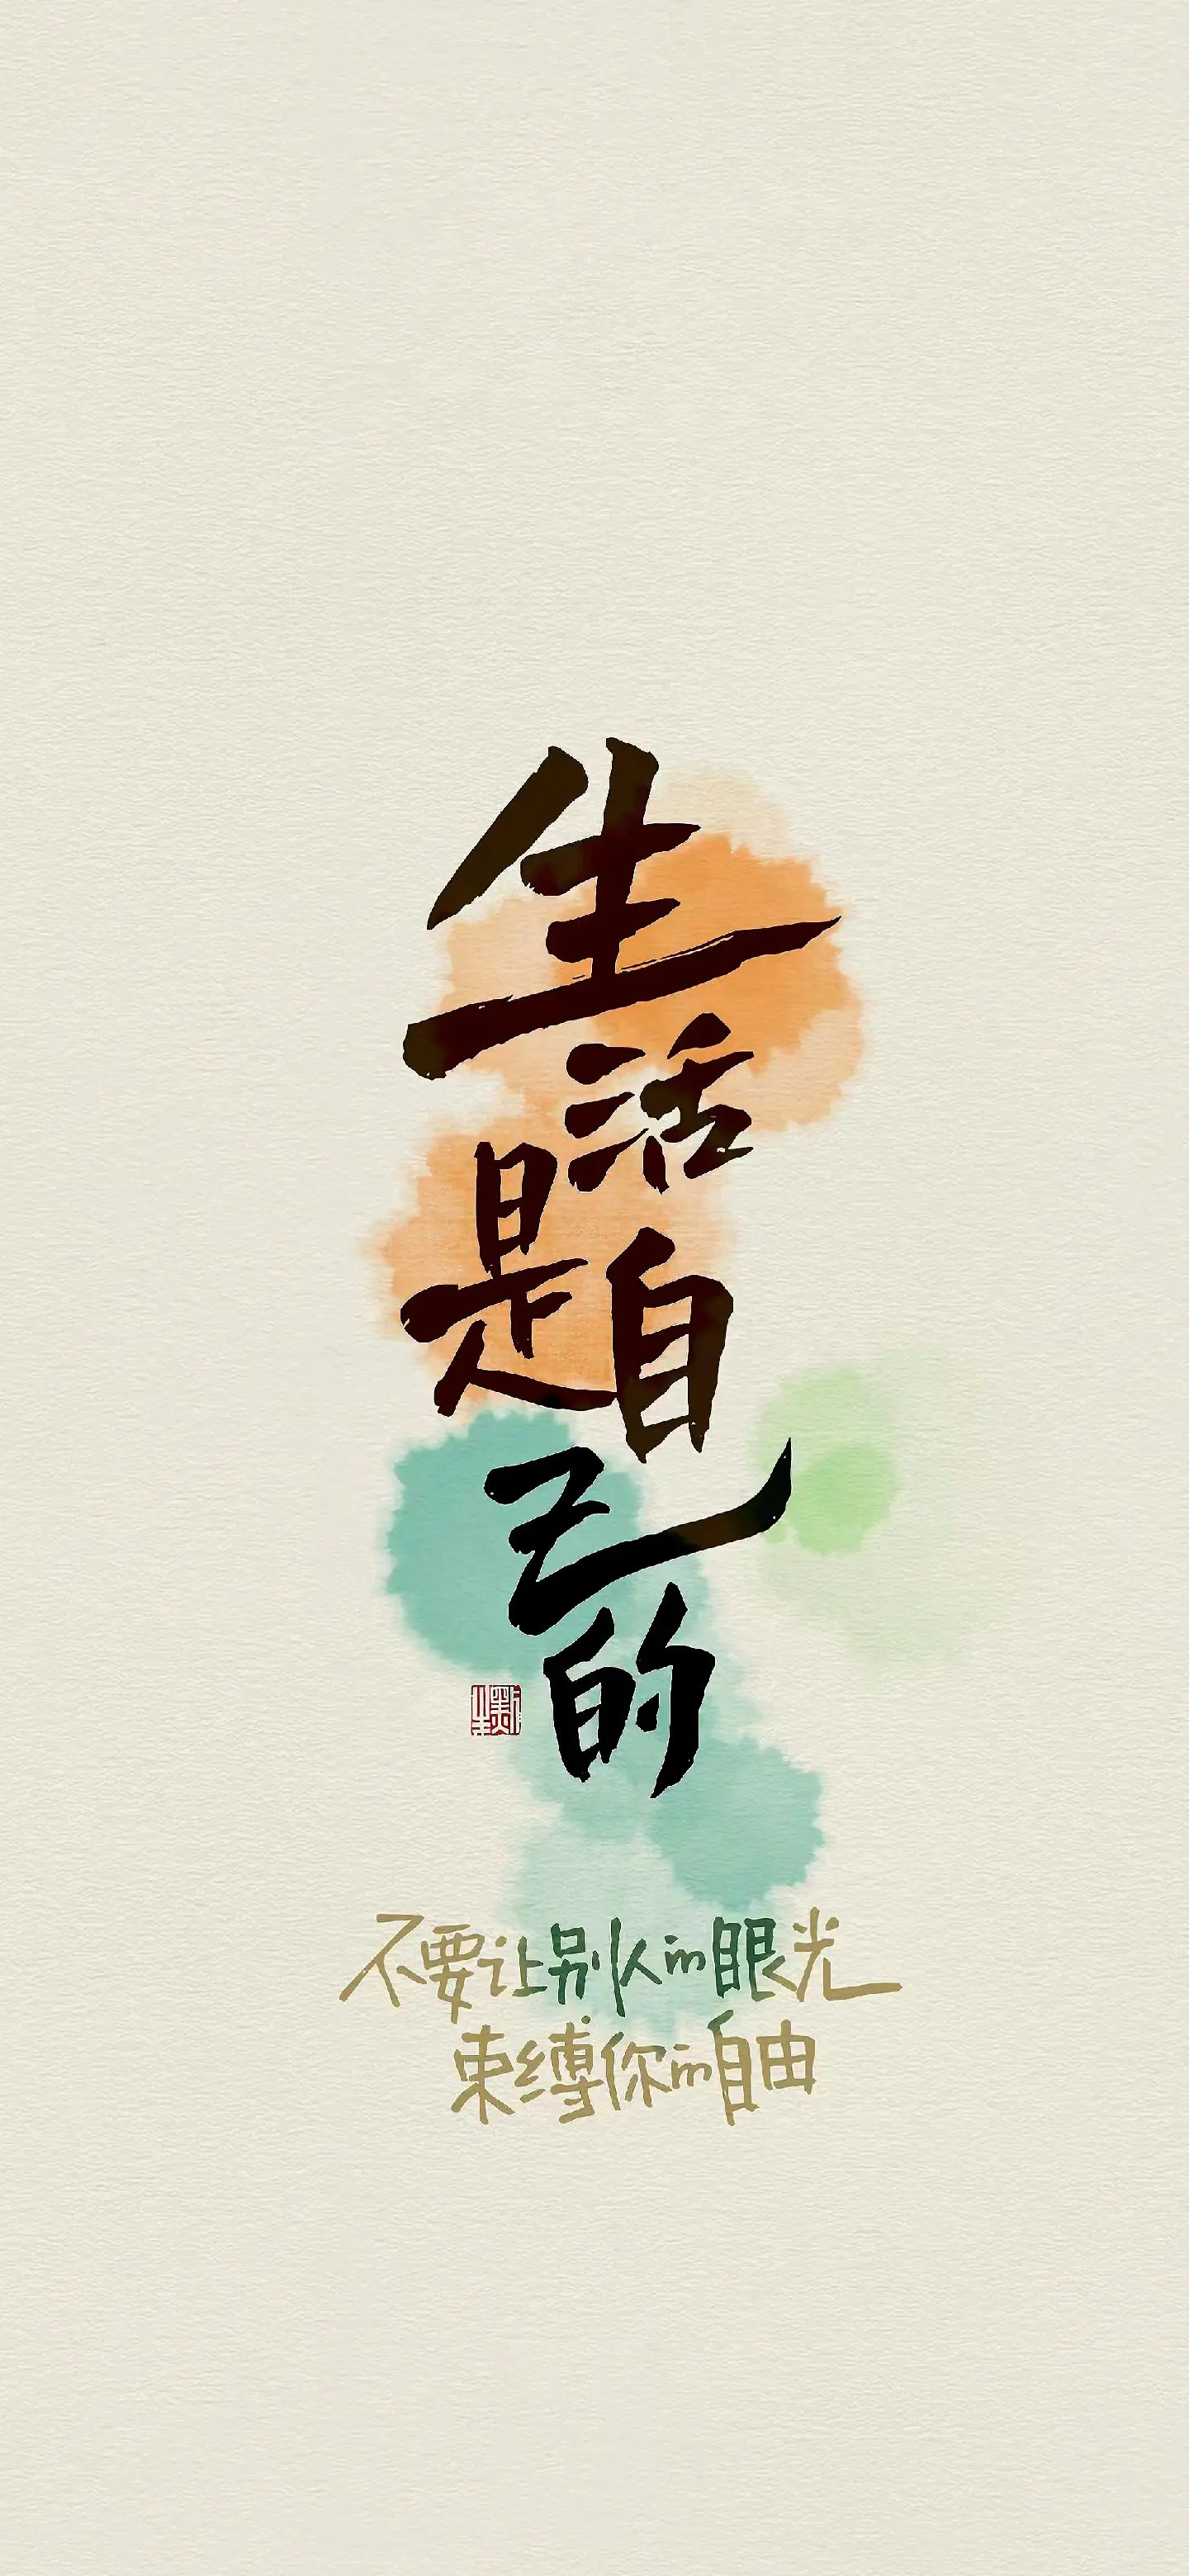 生活是自己的
不要让别人的眼光
束缚你的自由